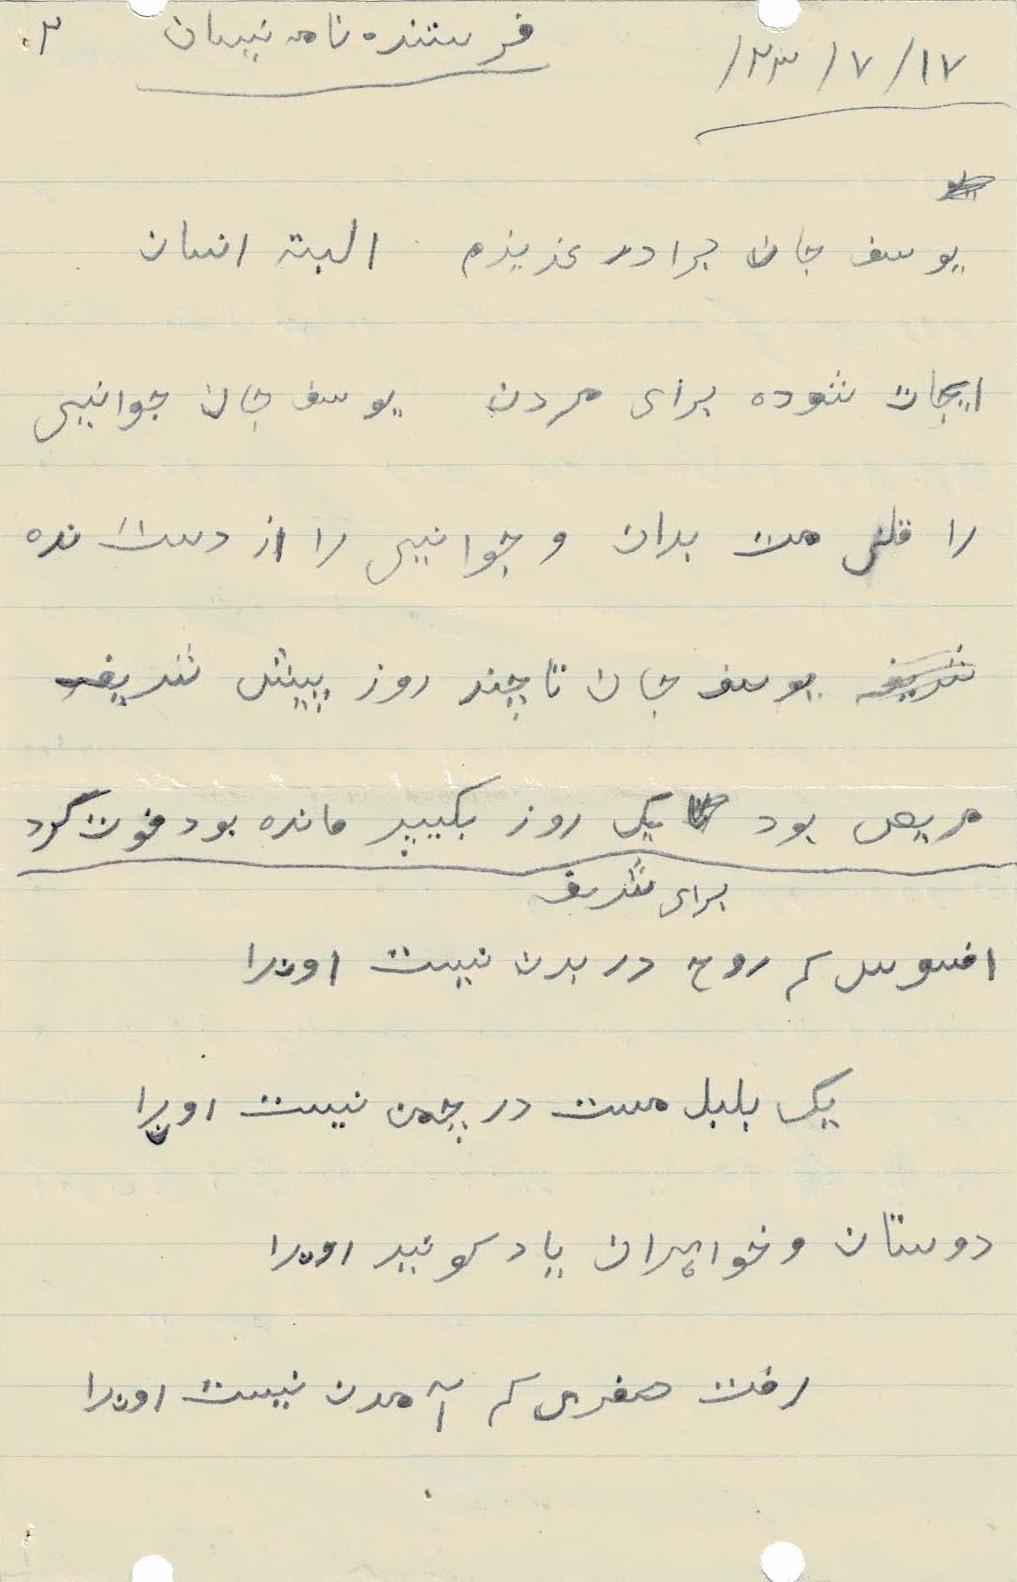 ۱۷/۷/۲۳/ فرستنده نامه نیسان ۳
یوسف جان برادر عزیزم البته انسان
ایجات شوده برای مردن یوسف جان جوانیی
را قلی من بدان و جوانیی را از دست نده
یوسف جان تا چند روز پیش شریف
مریض بود یک روز بکیپر مانده بود فوت کرد
برای شریف
افسوس که روح در بدن نیست اونرا
یک بلبل مست در چمن نیست اونرا
دوستان و خواهران یاد کونید اونرا
رفت صفری که آمدن نیست اونرا